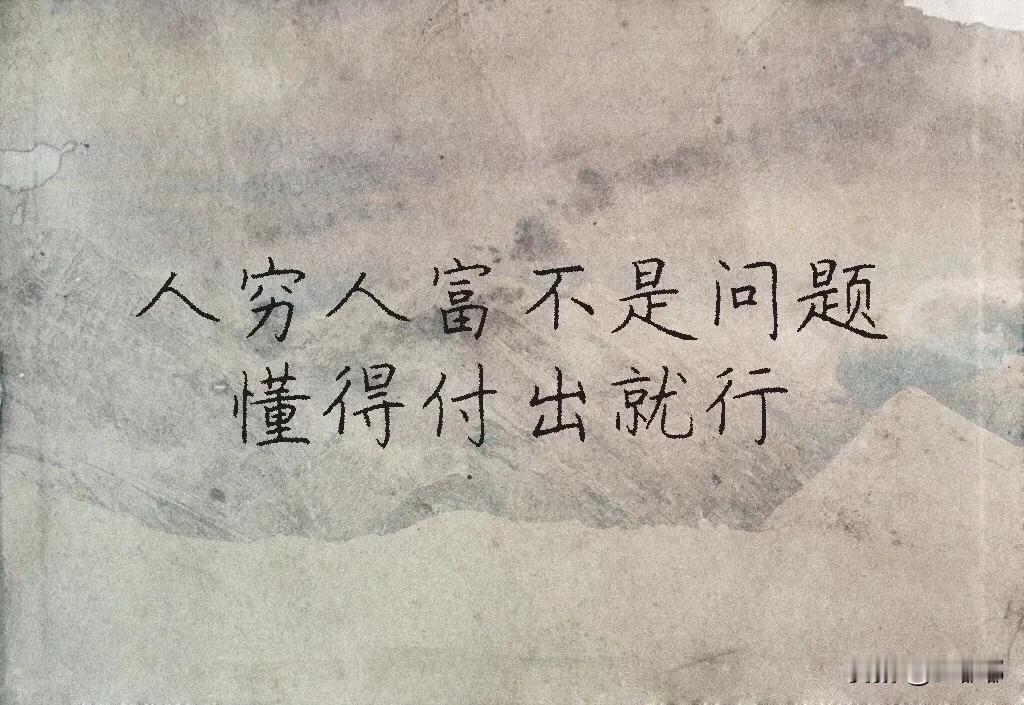 人穷人富不是问题
懂得付出就行